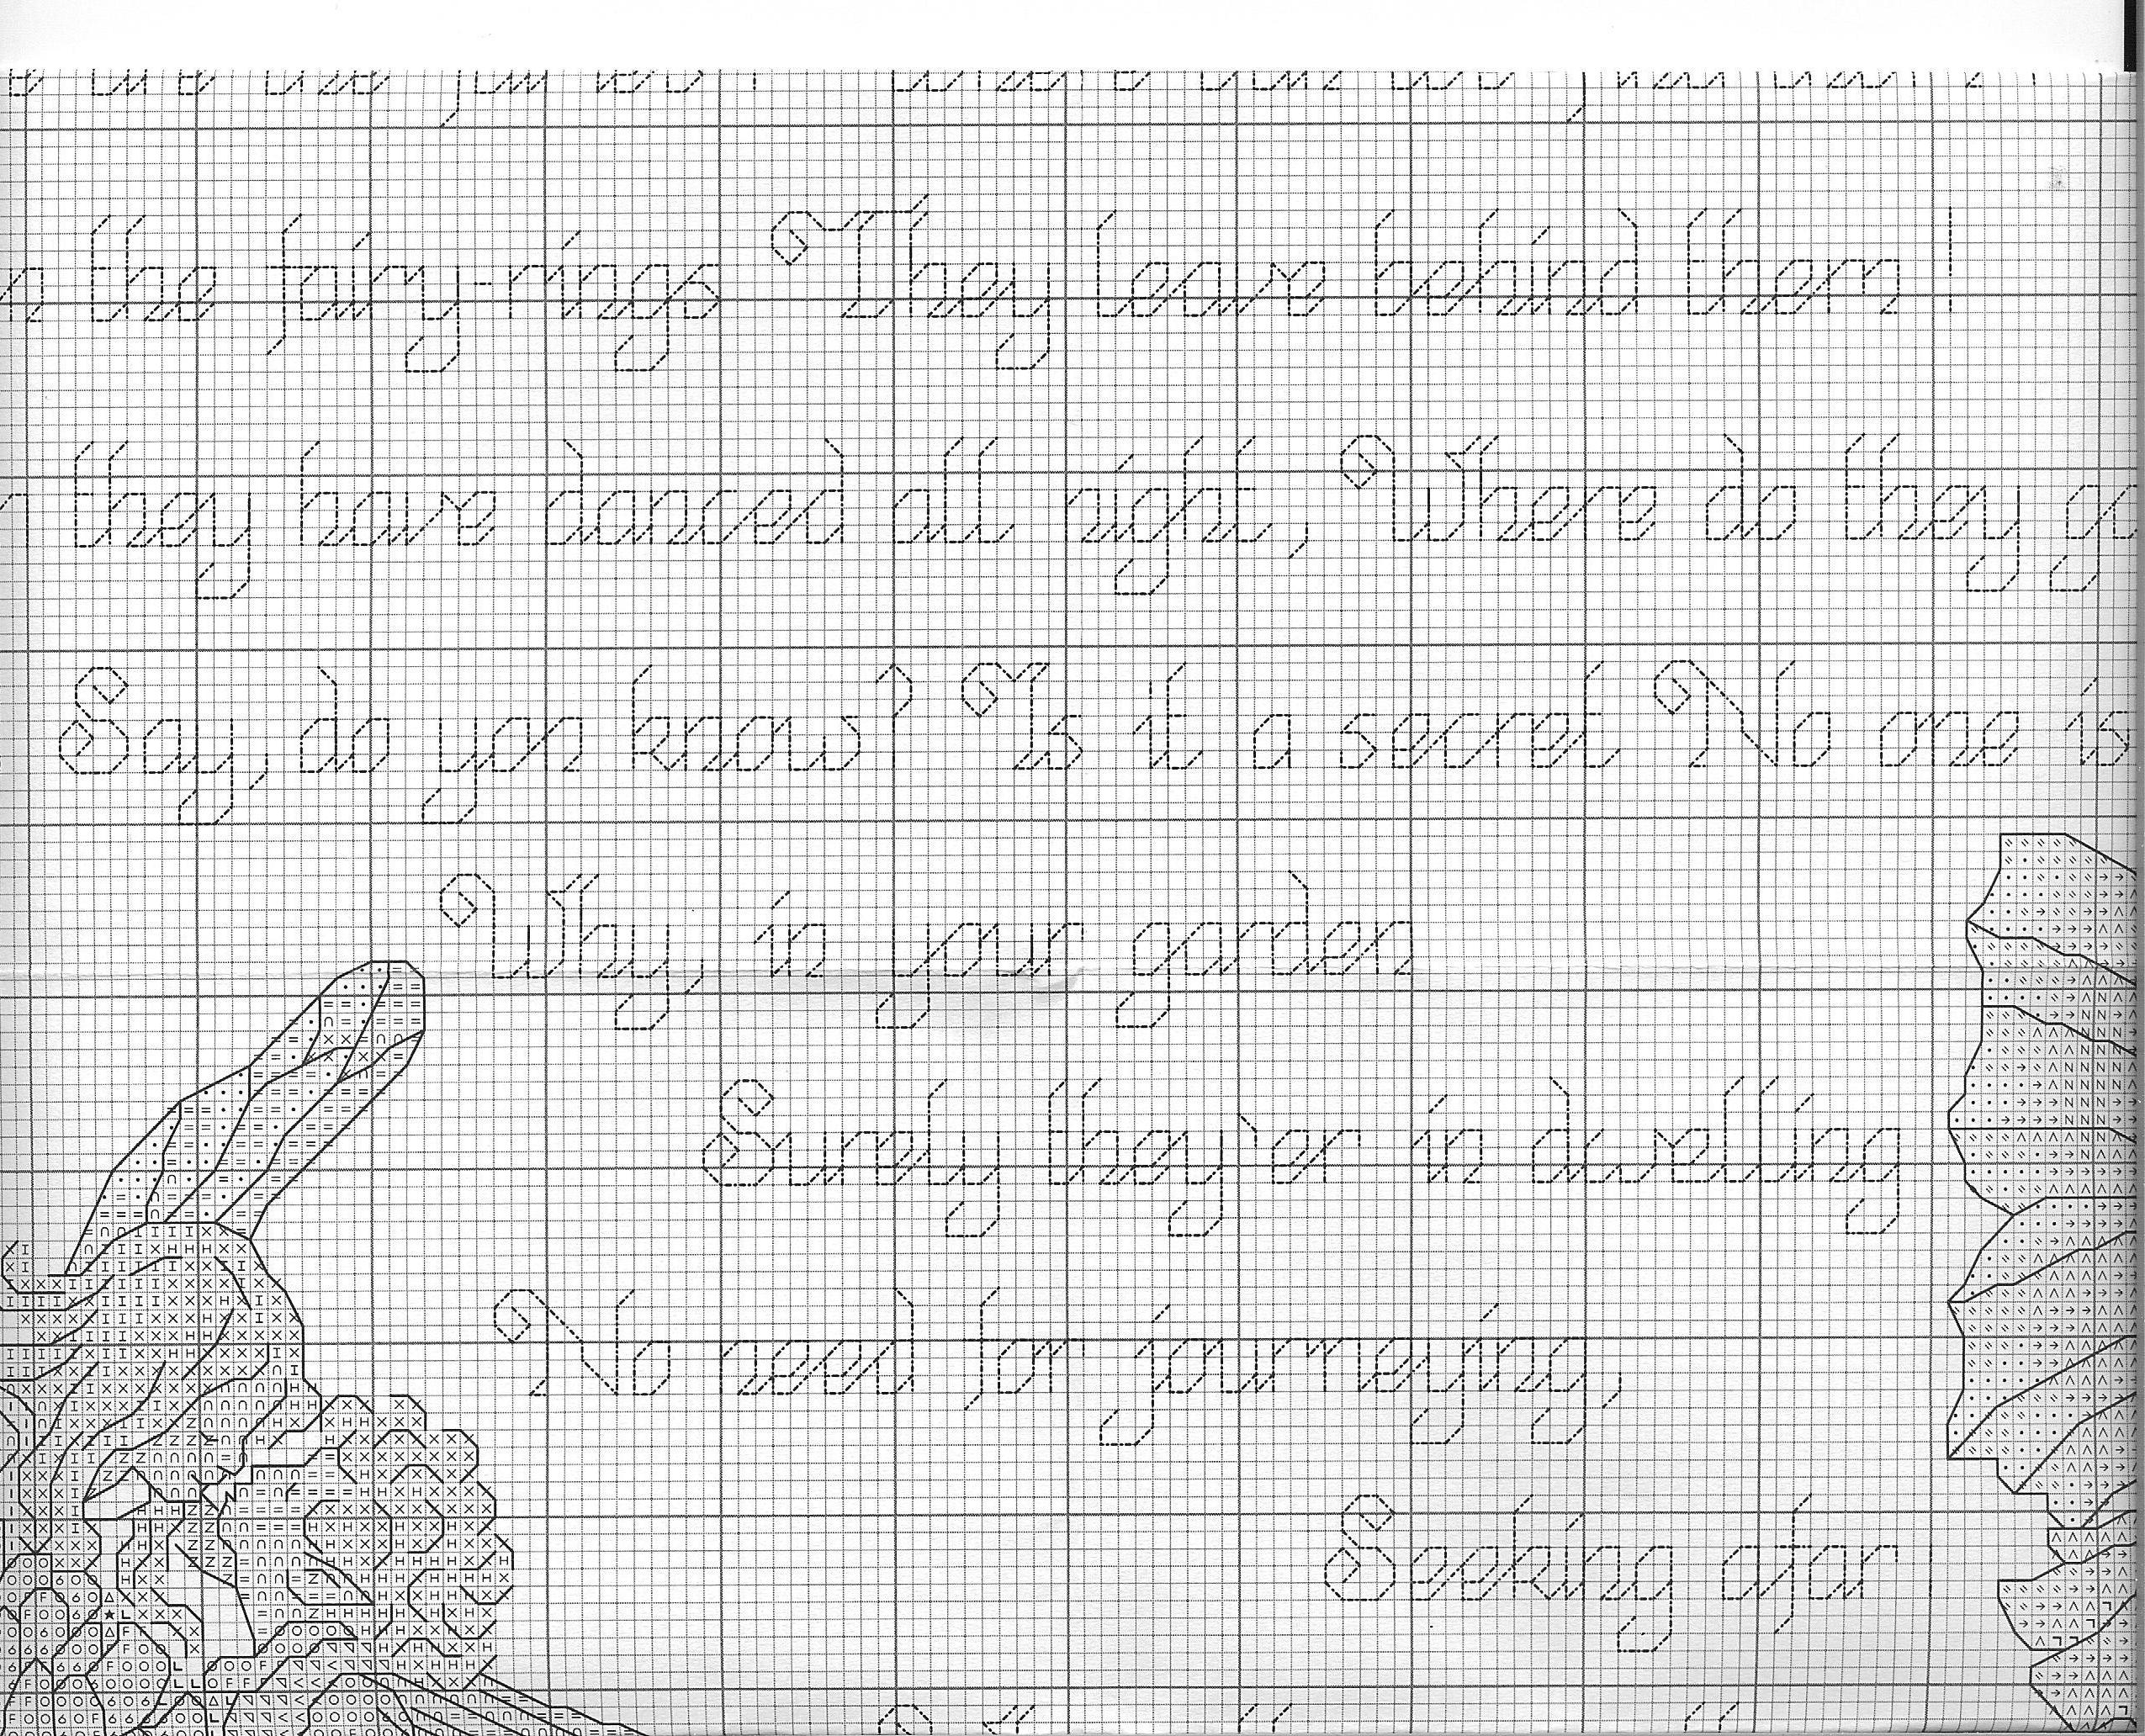 the fairy-rings They leave behind them!
they have danced all night, Where do they go
Say, do you know? Is it a secret No one is
Why, in your garden
Surely they'er in dwelling
No need for journeying,
Seeking afar